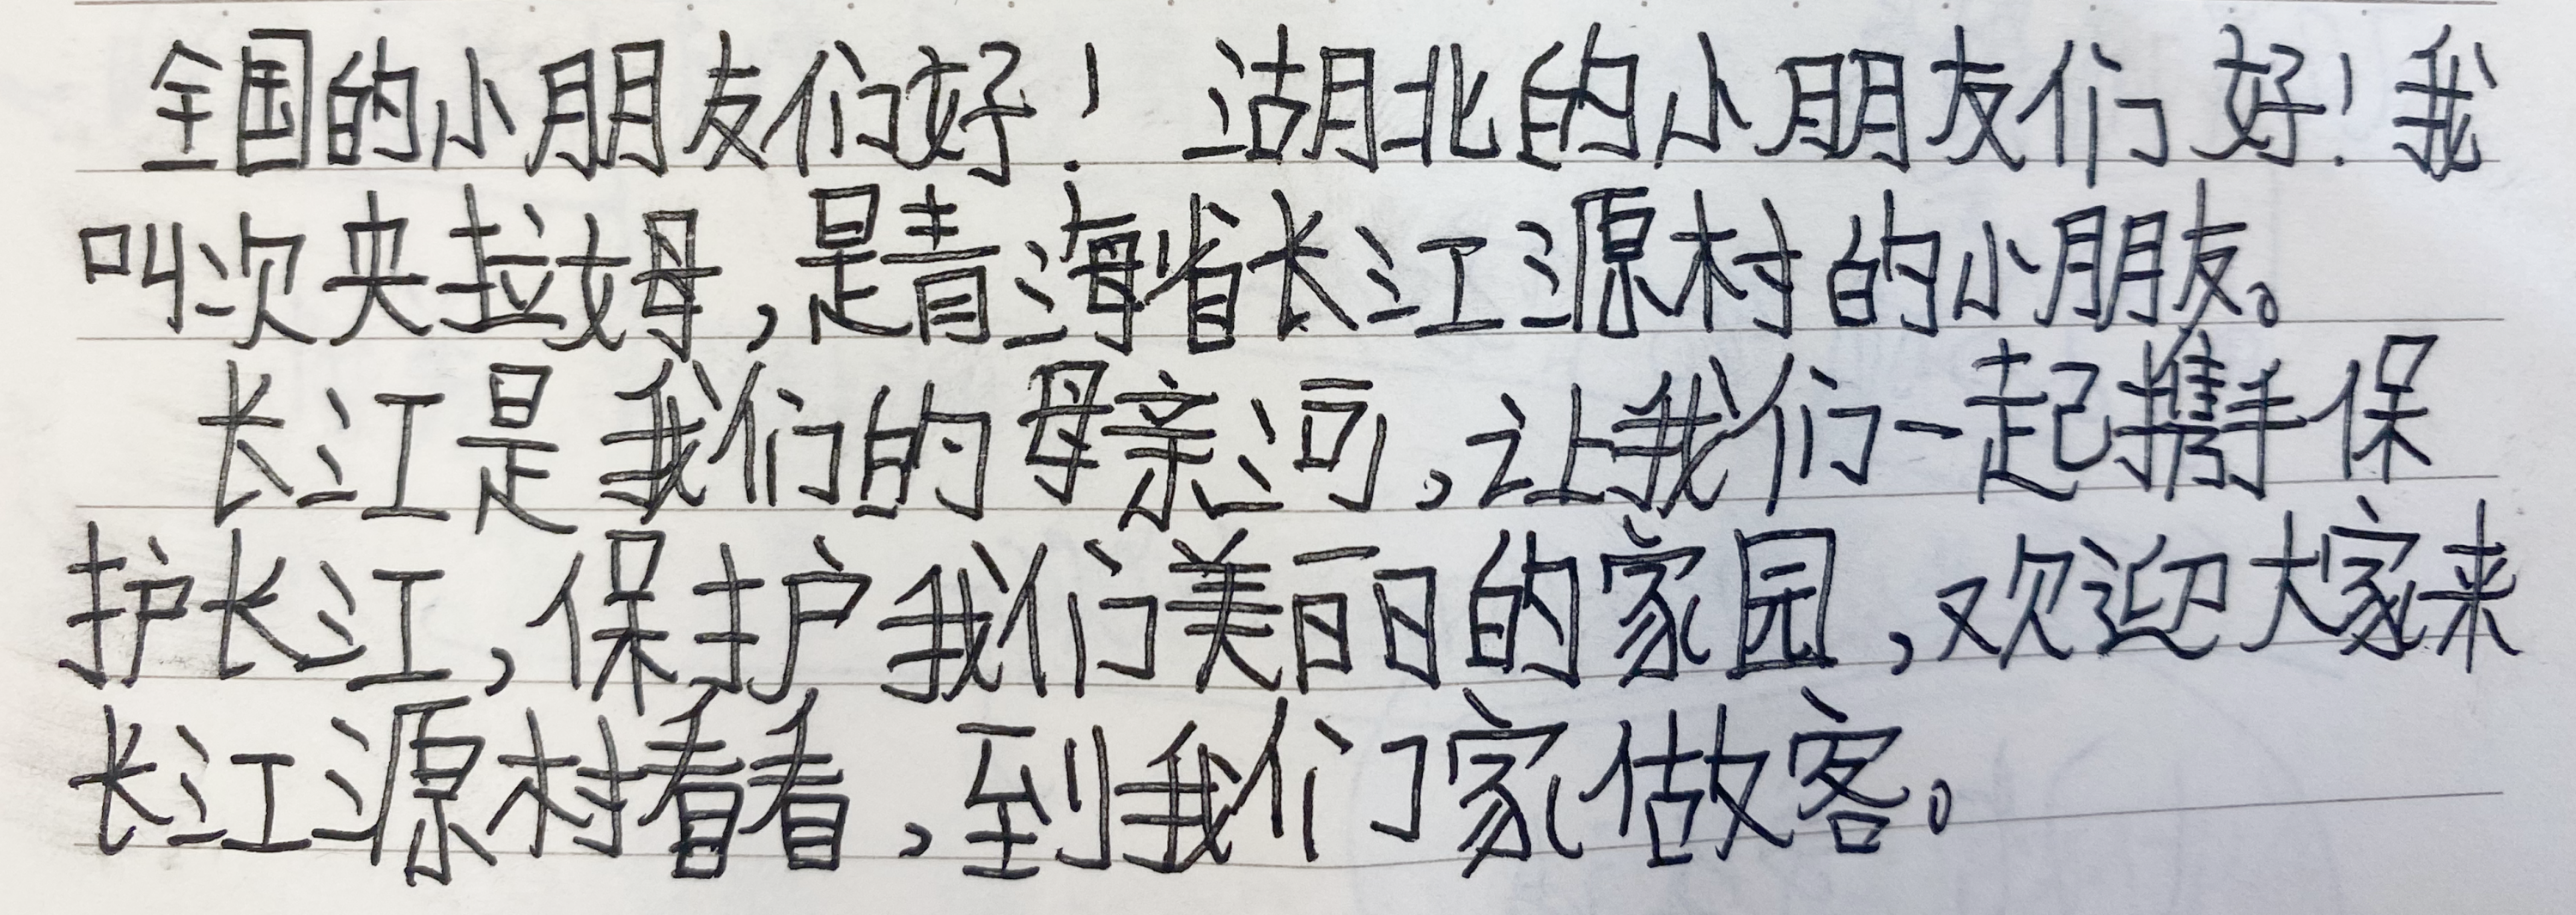 全国的小朋友们好！湖北的小朋友们好！我
叫次央拉姆，是青海省长江源村的小朋友。
长江是我们的母亲河，让我们一起携手保
护长江，保护我们美丽的家园，欢迎大家来
长江源村看看，到我们家做客。